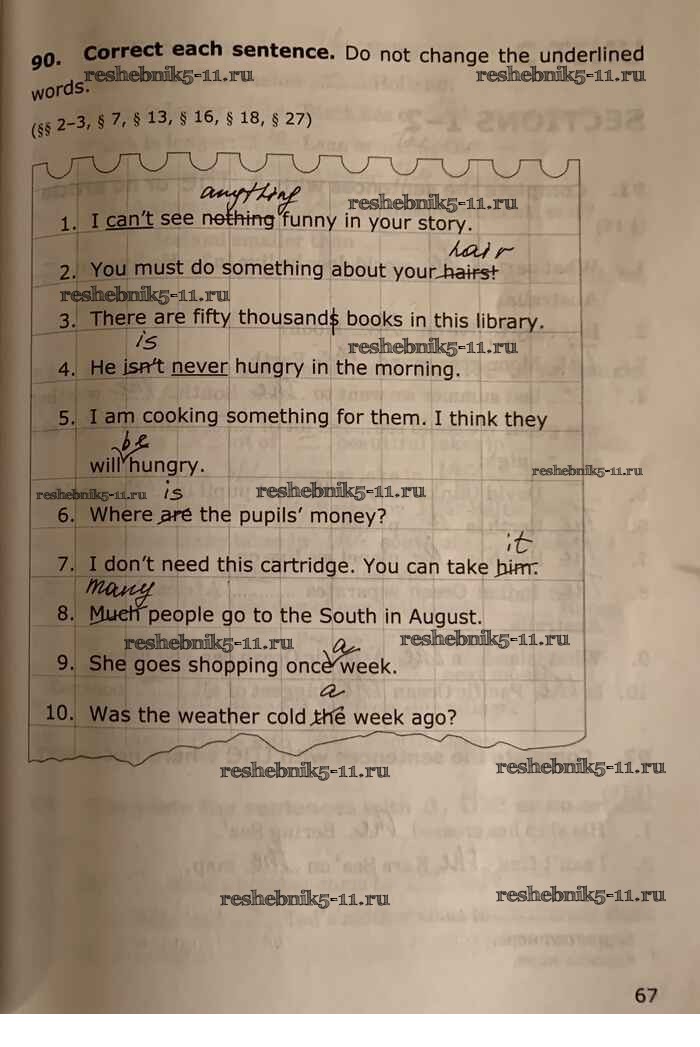 90. Correct each sentence. Do not change the underlined
reshebnik5-11.ru reshebnik5-11.ru
words.
(§§ 2–3, § 7, § 13, § 16, § 18, § 27)
anything
reshebnik5-11.ru
1. I can't see nothing funny in your story.
hair
2. You must do something about your hairs!
reshebnik5-11.ru
3. There are fifty thousands books in this library.
is
reshebnik5-11.ru
4. He isn't never hungry in the morning.
5. I am cooking something for them. I think they
be
will hungry.
reshebnik5-11.ru
reshebnik5-11.ru is reshebnik5-11.ru
6. Where are the pupils' money?
it
7. I don't need this cartridge. You can take him.
many
8. Much people go to the South in August.
reshebnik5-11.ru a reshebnik5-11.ru
9. She goes shopping once week.
a
10. Was the weather cold the week ago?
reshebnik5-11.ru reshebnik5-11.ru
reshebnik5-11.ru reshebnik5-11.ru
67